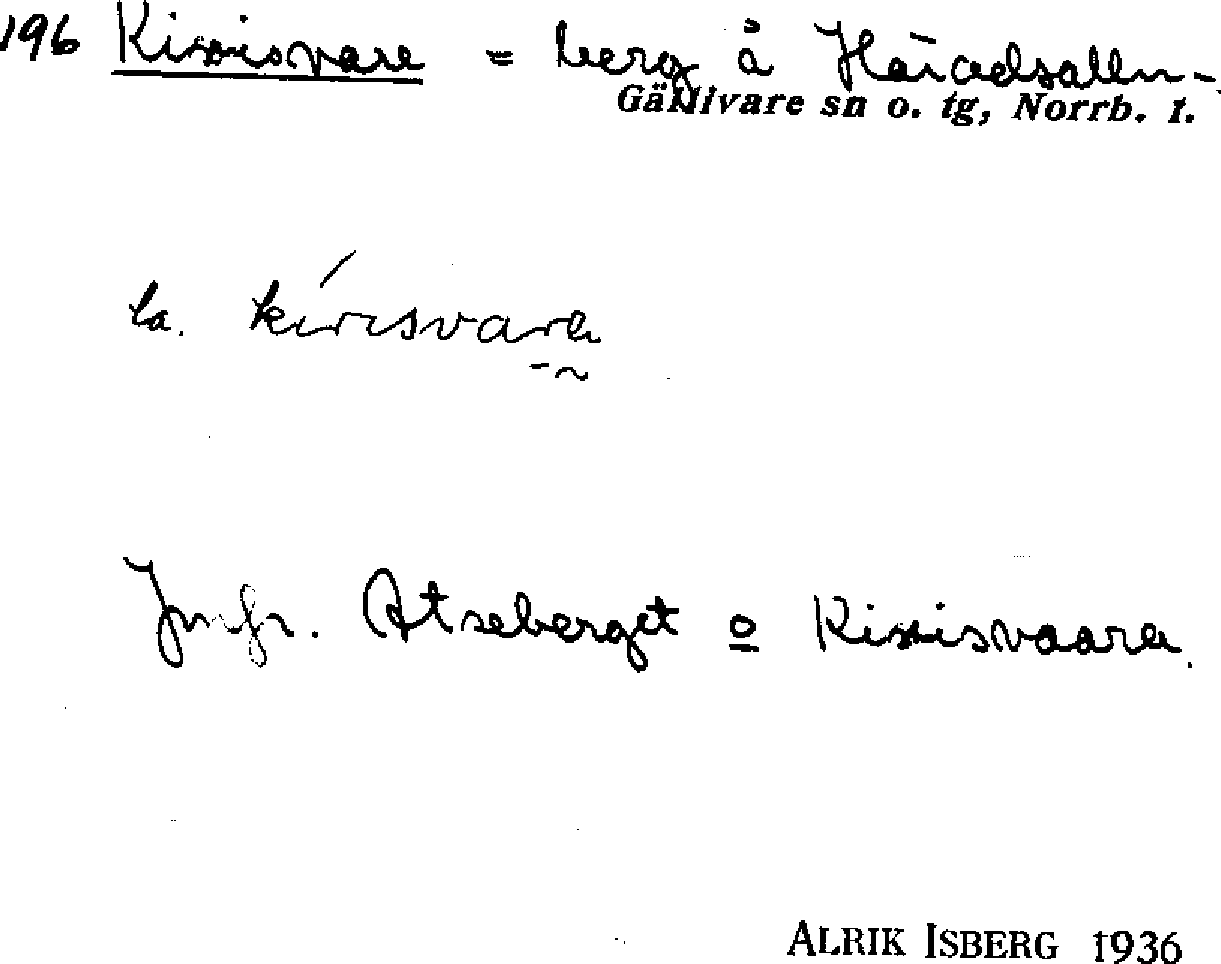 196 Kirisvare = berg å Häradsallm-
Gällivare sn o. tg, Norrb. l.
la. kirisvara
Jmfr. Atseberget o Kirisvaara.
ALRIK ISBERG 1936